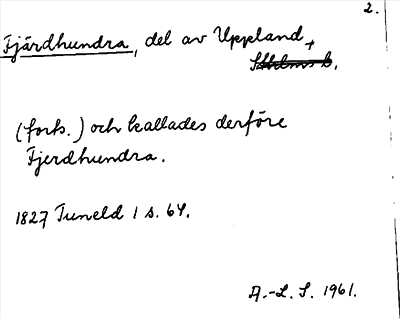 2.
Fjärdhundra, del av Uppland,
(forts.) och kallades derföre
Fjerdhundra.
1827 Tuneld 1 s. 64.
A.-L. S. 1961.